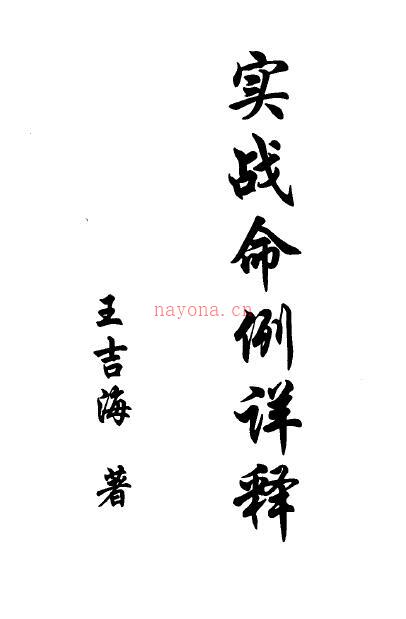 实战命例详释
王吉海 著
nayona.cn